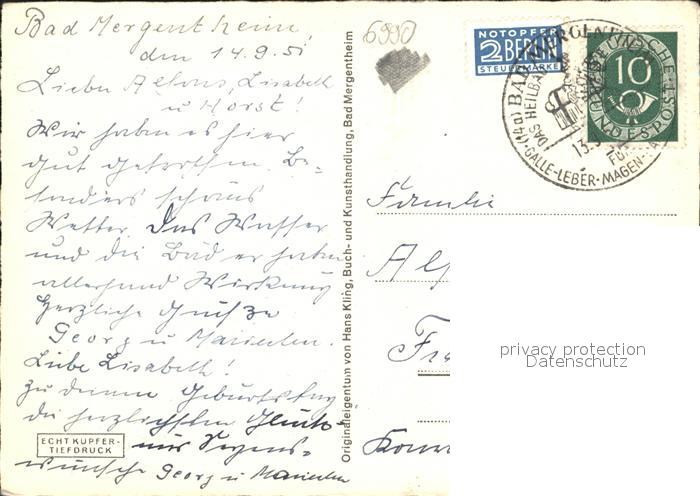 Bad Mergentheim,
den 14.9.51
Liebe Alfons, Lisabeth
u Horst!
Wir haben es hier
gut getroffen. Be-
sonders schönes
Wetter. Das Wasser
und die Bäder haben
allerhand Wirkung
Herzliche Grüsze
Georg u Marielen.
Liebe Lisabeth!
Zu deinem Geburtstag
die herzlichsten Glück-
und Segens-
wünsche Georg u Marielen
ECHT KUPFER-
TIEFDRUCK
Originaleigentum von Hans Kling, Buch- und Kunsthandlung, Bad Mergentheim
6990
NOTOPFER
2 BERLIN
STEUERMARKE
DEUTSCHE
BUNDESPOST
10
(14a) BAD MERGENTHEIM
DAS HEILBAD
13.
GALLE-LEBER-MAGEN-
Familie
privacy protection
Datenschutz